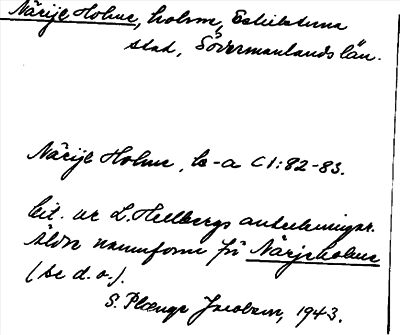 Närije Holme, holme, Eskilstuna
stad, Södermanlands län.
Närije Holme, le-a C1:82-83.
Cit. ur L. Hellbergs anteckningar.
Äldre namnform för Närjeholme
(se d. o.).
S. Plænge Jacobson, 1943.